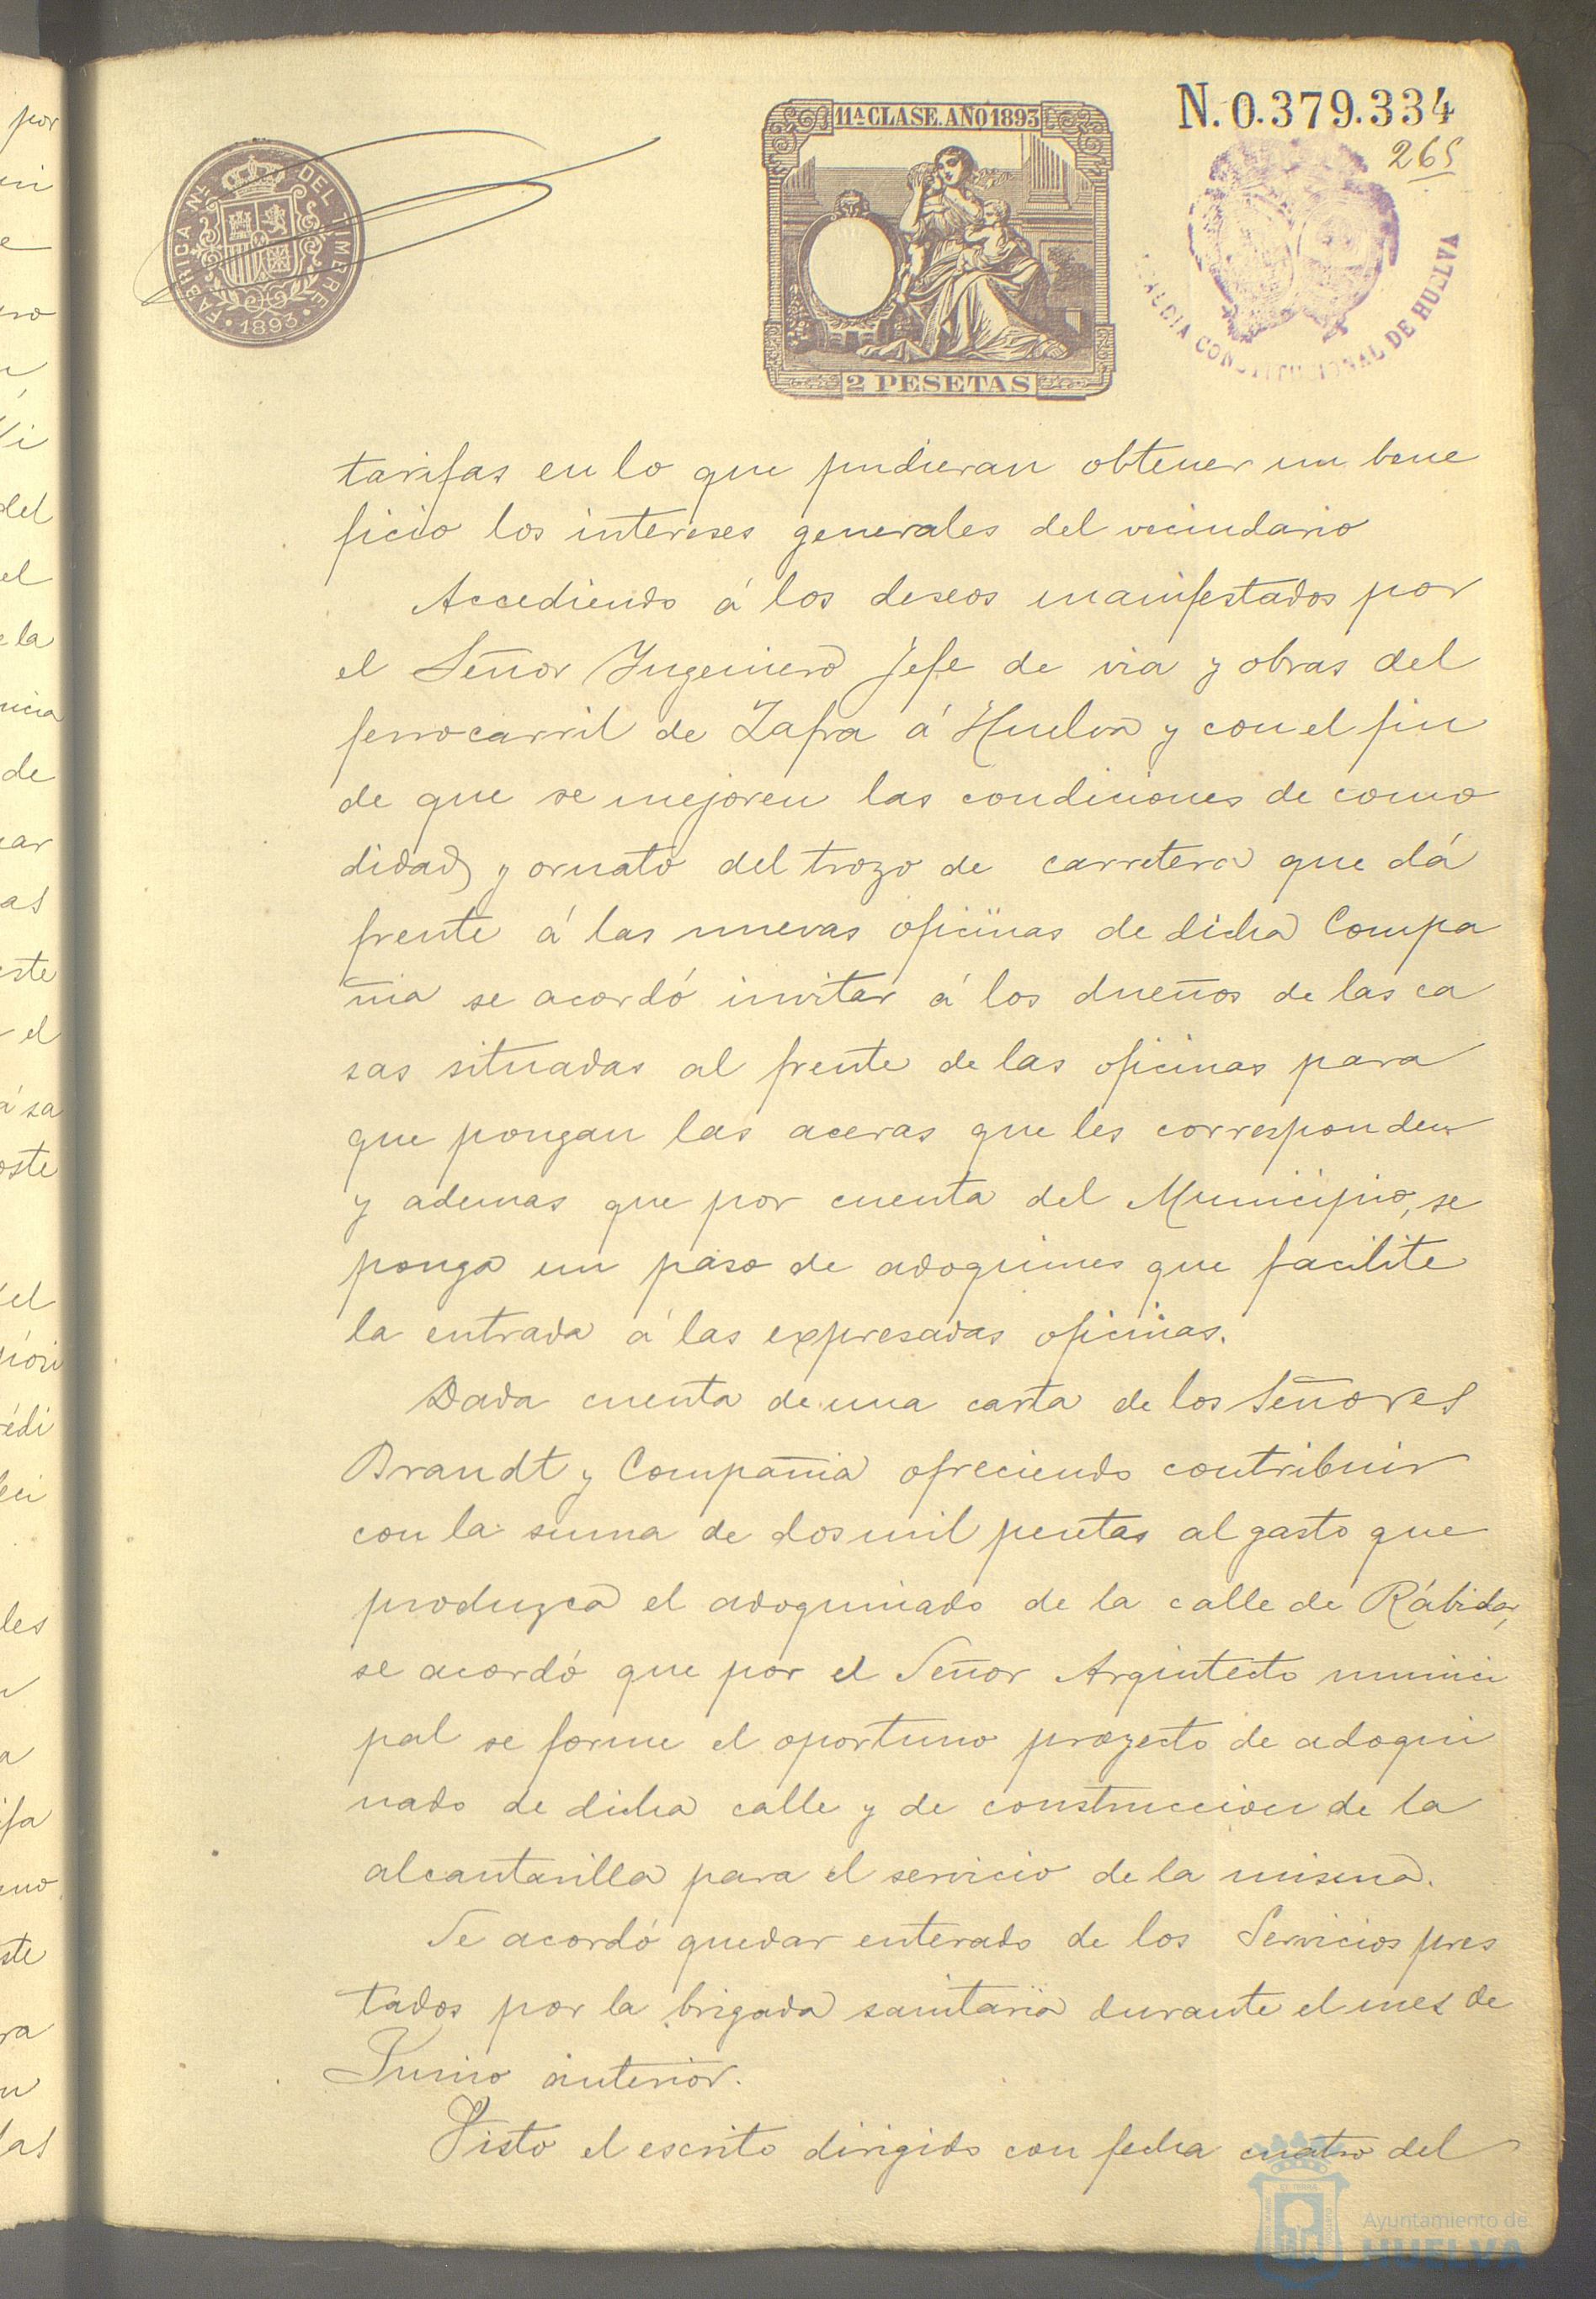 N. 0.379.334
265
11ª CLASE. AÑO 1893
FÁBRICA Nal. DEL TIMBRE · 1893 ·
2 PESETAS
ALCALDIA CONSTITUCIONAL DE HUELVA
tarifas en lo que pudieran obtener un bene
ficio los intereses generales del vecindario
Accediendo á los deseos manifestados por
el Señor Ingeniero Jefe de via y obras del
ferrocarril de Zafra á Huelva y con el fin
de que se mejoren las condiciones de como
didad y ornato del trozo de carretera que dá
frente á las nuevas oficinas de dicha Compa
ñia se acordó invitar á los dueños de las ca
sas situadas al frente de las oficinas para
que pongan las aceras que les corresponden
y ademas que por cuenta del Municipio, se
ponga un paso de adoquines que facilite
la entrada á las expresadas oficinas.
Dada cuenta de una carta de los Señores
Brandt y Compañia ofreciendo contribuir
con la suma de dos mil pesetas al gasto que
produzca el adoquinado de la calle de Rábida,
se acordó que por el Señor Arquitecto munici
pal se forme el oportuno proyecto de adoqui
nado de dicha calle y de construccion de la
alcantarilla para el servicio de la misma.
Se acordó quedar enterado de los Servicios pres
tados por la brigada sanitaria durante el mes de
Junio anterior.
Visto el escrito dirigido con fecha cuatro del
Ayuntamiento de
HUELVA